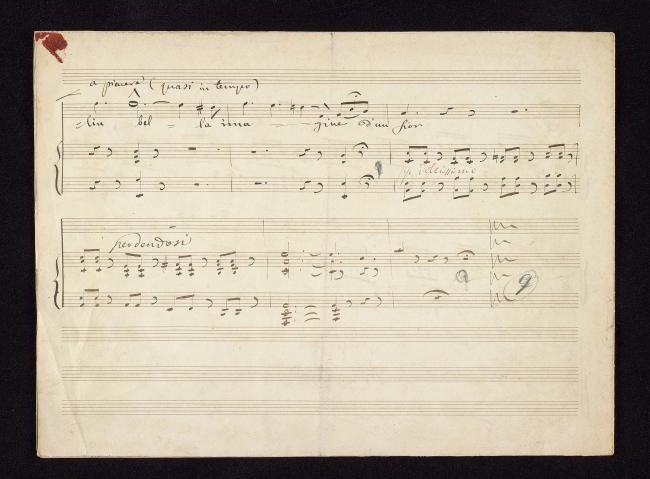 a piacere (quasi in tempo)
=lin bel = la ima = gine d'un fior
perdendosi
9 9